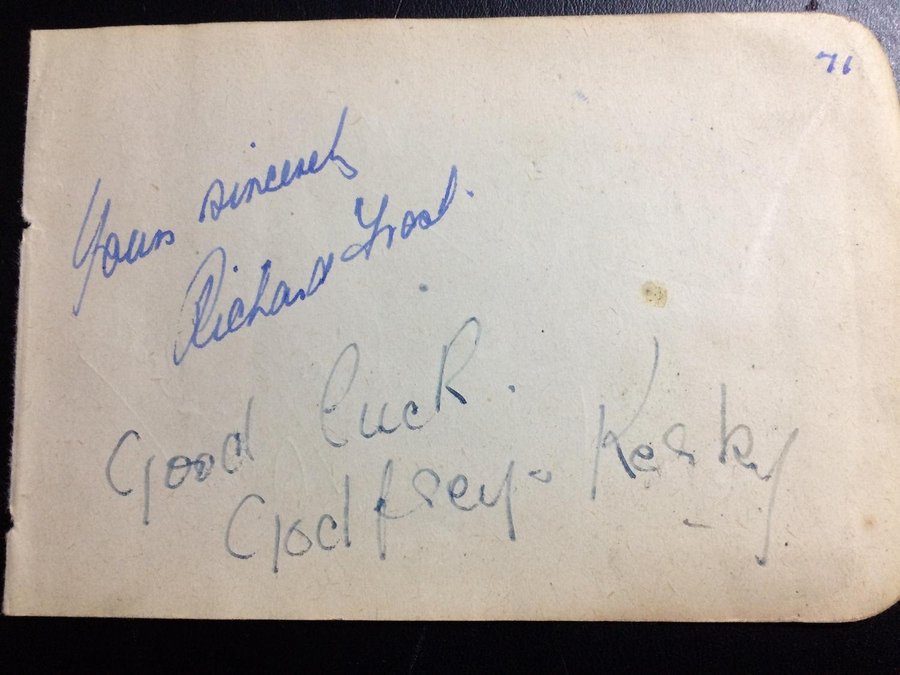 71
Yours sincerely
Richard Frost.
Good luck.
Godfrey - Kesky